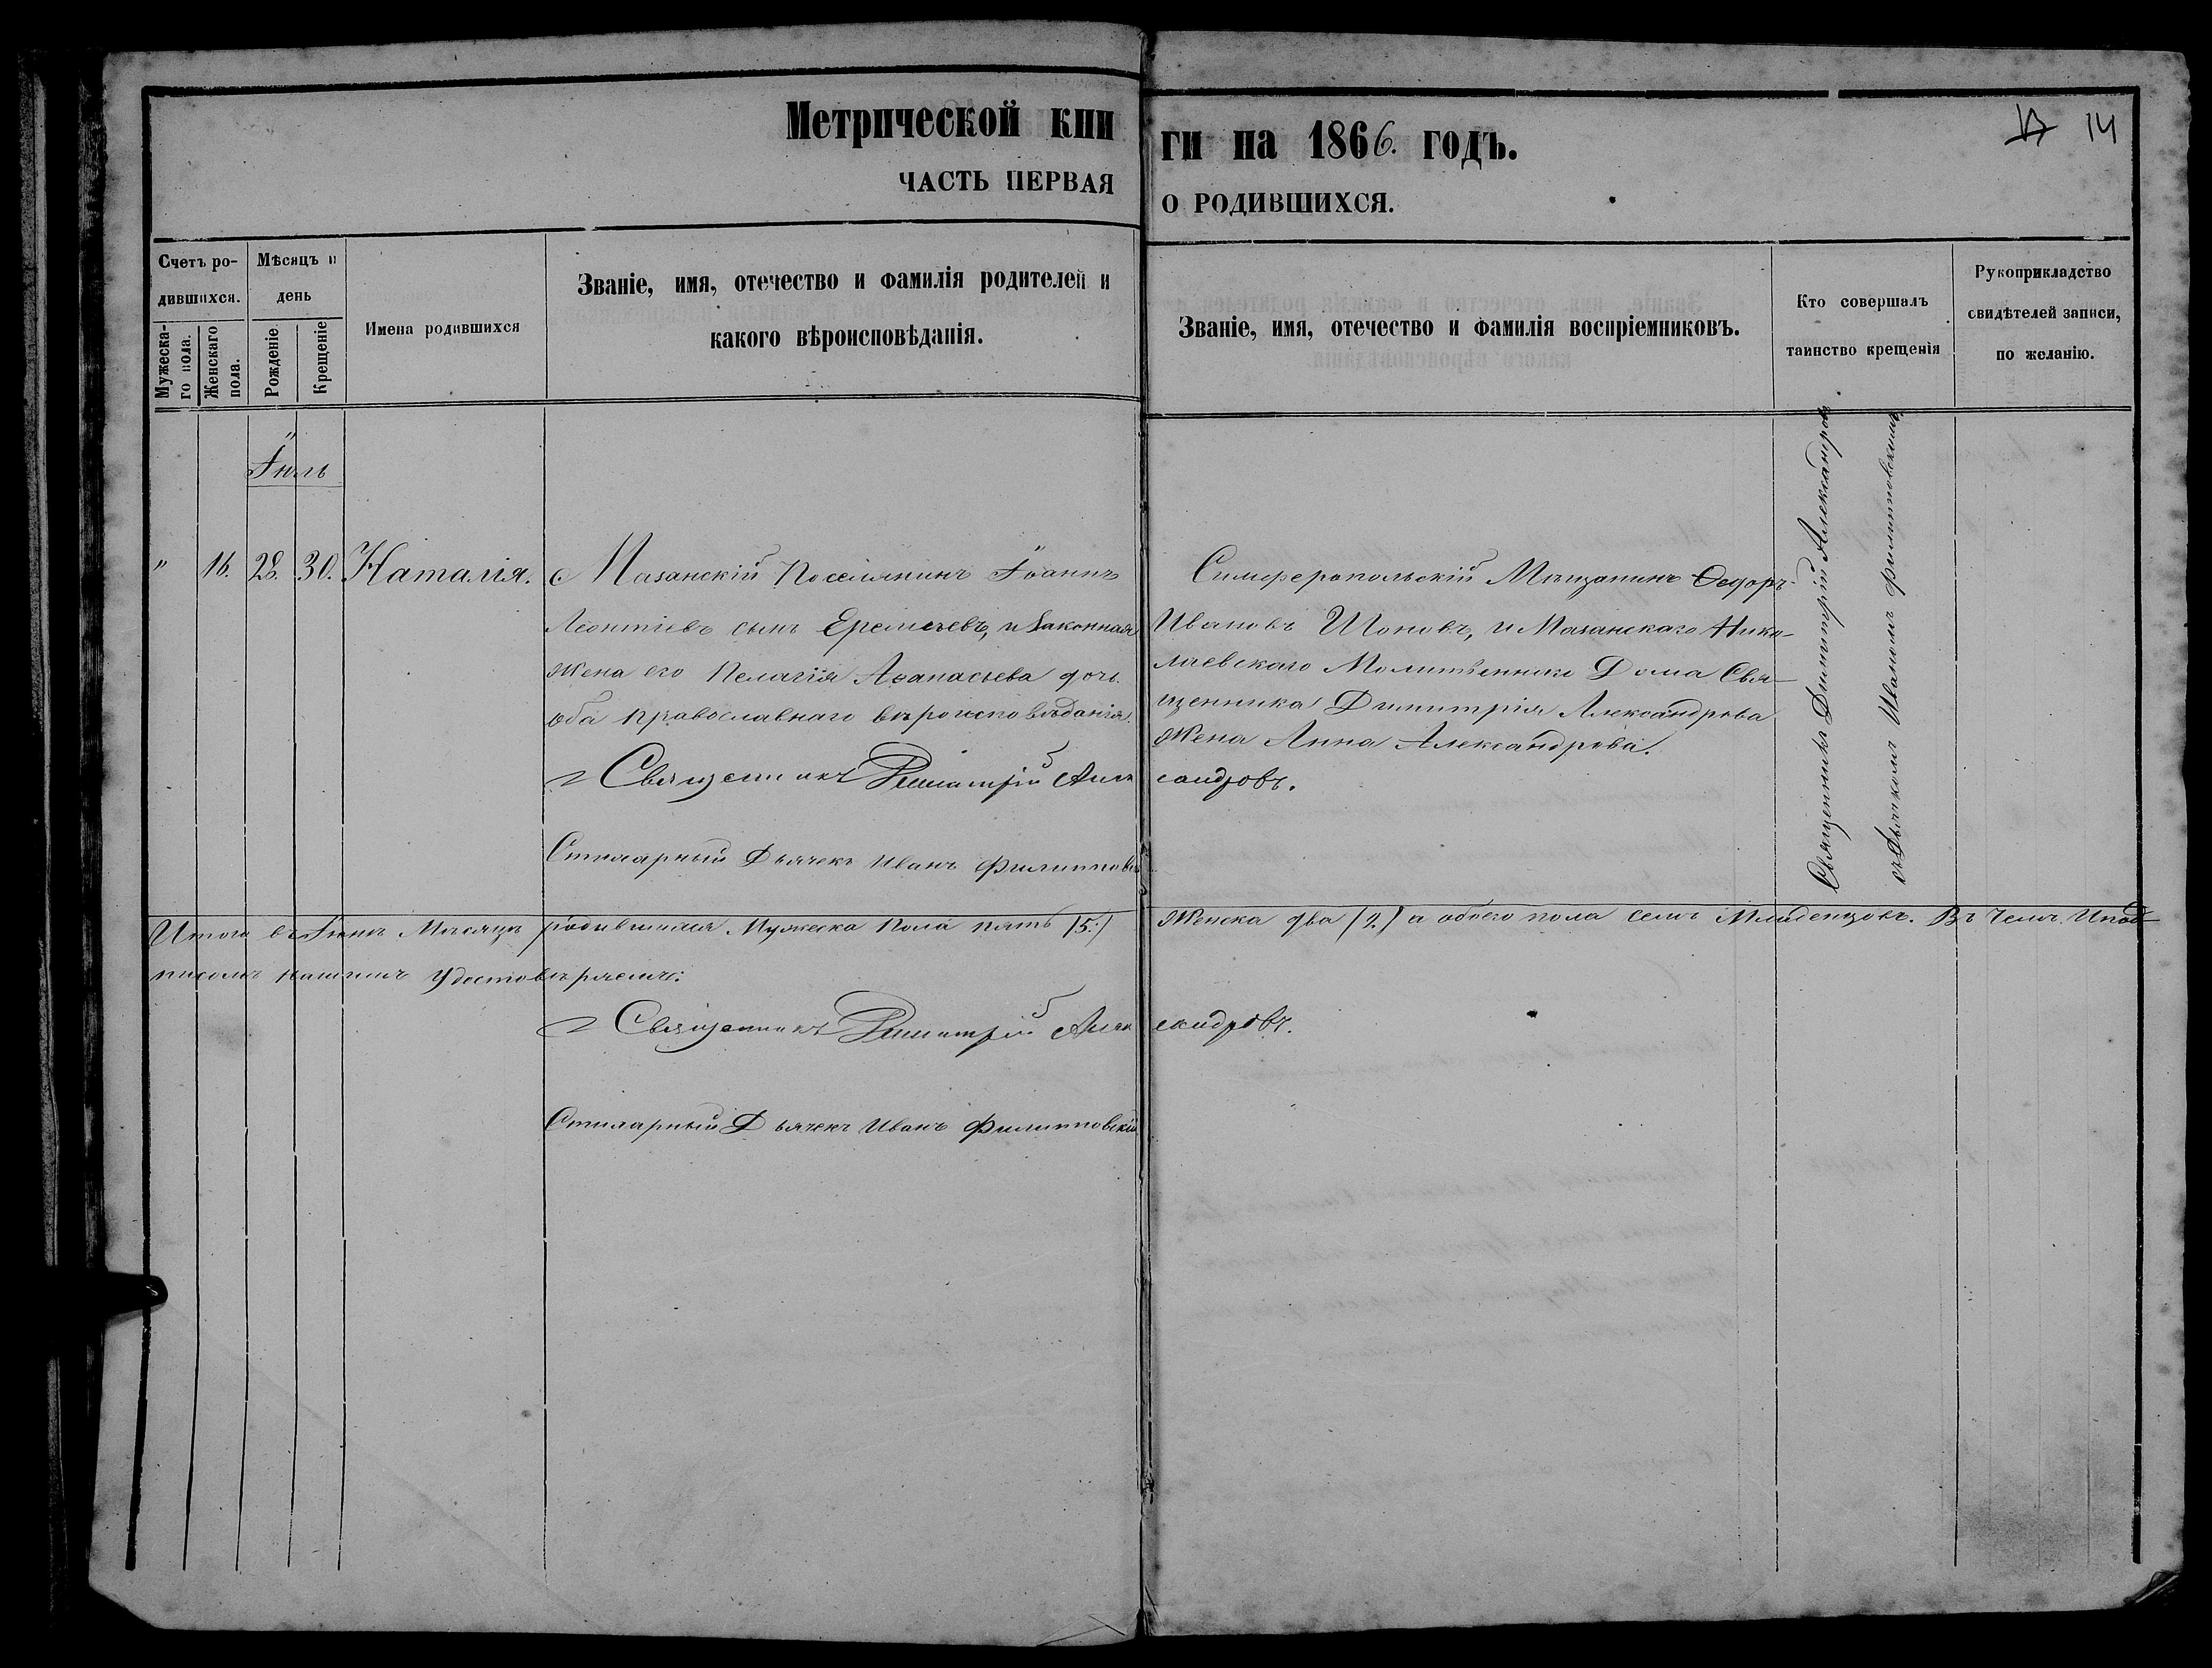 Метрической кни
ги на 1866. годъ.
14
ЧАСТЬ ПЕРВАЯ
О РОДИВШИХСЯ.
Счетъ ро-
дившихся.
Мужеска-
го пола.
Женскаго
пола.
Мѣсяцъ и
день
Рожденіе.
Крещеніе
Имена родившихся
Званіе, имя, отечество и фамилія родителей и
какого вѣроисповѣданія.
Званіе, имя, отечество и фамилія воспріемниковъ.
Кто совершалъ
таинство крещенія
Рукоприкладство
свидѣтелей записи,
по желанію.
"
16.
28.
30.
Наталія.
Мазанскій Поселянинъ Іоаннъ
Леонтіевъ сынъ Еремѣевъ, и Законная
Жена его Пелагія Аѳанасьева дочь
оба православнаго вѣроисповѣданія.
Священникъ Димитрій Алек
сандровъ.
Стихарный Дьячекъ Иванъ Филипповскій
Симферопольскій Мѣщанинъ Ѳедоръ
Ивановъ Шоновъ, и Мазанскаго Нико-
лаевскаго Молитвеннаго Дома Свя-
щенника Димитрія Александрова
Жена Анна Александрова.
Священникъ Димитрій Александровъ
съ Дьячкомъ Иваномъ Филипповскимъ
Итого въ Мѣсяцѣ родившихся. Мужеска Пола пять (5.)
Женска два (2.) а обоего пола семь Младенцовъ. Въ чемъ и под-
писомъ нашимъ Удостовѣряемъ:
Священникъ Димитрій Алек
сандровъ.
Стихарный Дьячекъ Иванъ Филипповскій